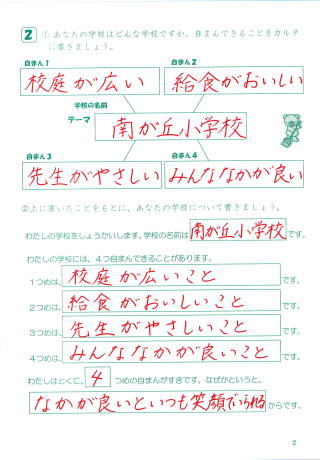 2 ①あなたの学校はどんな学校ですか。自まんできることをカルタ
に書きましょう。
自まん1
自まん2
校庭が広い
給食がおいしい
学校の名前
テーマ
南が丘小学校
自まん3
自まん4
先生がやさしい
みんななかが良い
②上に書いたことをもとに、あなたの学校について書きましょう。
わたしの学校をしょうかいします。学校の名前は南が丘小学校です。
わたしの学校には、4つ自まんできることがあります。
1つめは、校庭が広いことです。
2つめは、給食がおいしいことです。
3つめは、先生がやさしいことです。
4つめは、みんななかが良いことです。
わたしはとくに、4つめの自まんがすきです。なぜかというと、
なかが良いといつも笑顔でいられるからです。
2